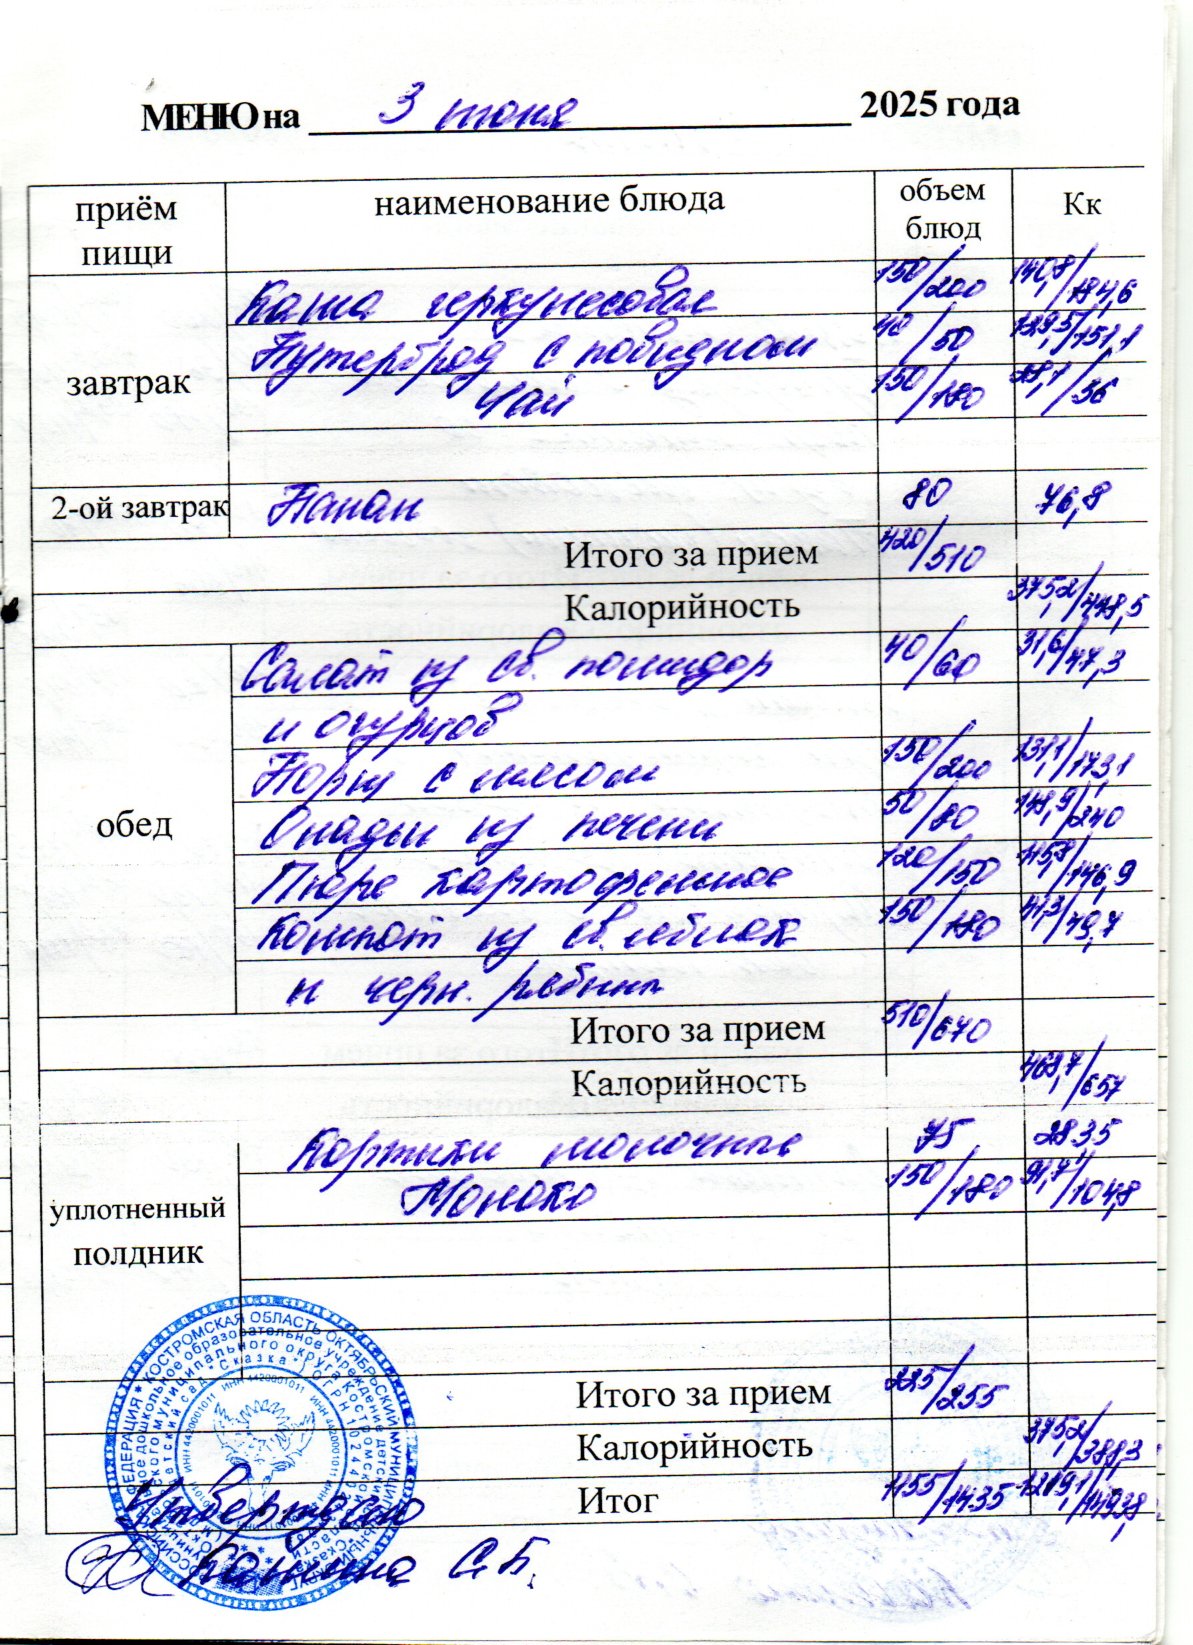 МЕНЮ на 3 июня 2025 года
приём пищи наименование блюда объем блюд Кк
завтрак
Каша геркулесовая 150/200 140,8/184,6
Бутерброд с повидлом 40/50 129,5/151,1
Чай 150/180 28,1/36
2-ой завтрак Банан 80 76,8
Итого за прием 420/510
Калорийность 375,2/448,5
обед
Салат из св. помидор 40/60 31,6/47,3
и огурцов
Борщ с мясом 150/200 131,1/173,1
Оладьи из печени 50/80 148,9/240
Пюре картофельное 120/150 115,8/146,9
Компот из св. яблок 150/180 41,3/49,7
и черн. рябины
Итого за прием 510/670
Калорийность 468,7/657
уплотненный полдник
Коржики молочные 75 283,5
Молоко 150/180 91,7/104,8
Итого за прием 225/255
Калорийность 375,2/388,3
Итог 1155/1435 1219,1/1493,8
Утверждаю
Канина С.Б.
РОССИЙСКАЯ ФЕДЕРАЦИЯ * КОСТРОМСКАЯ ОБЛАСТЬ ОКТЯБРЬСКИЙ МУНИЦИПАЛЬНЫЙ ОКРУГ
ИНН 4420001011